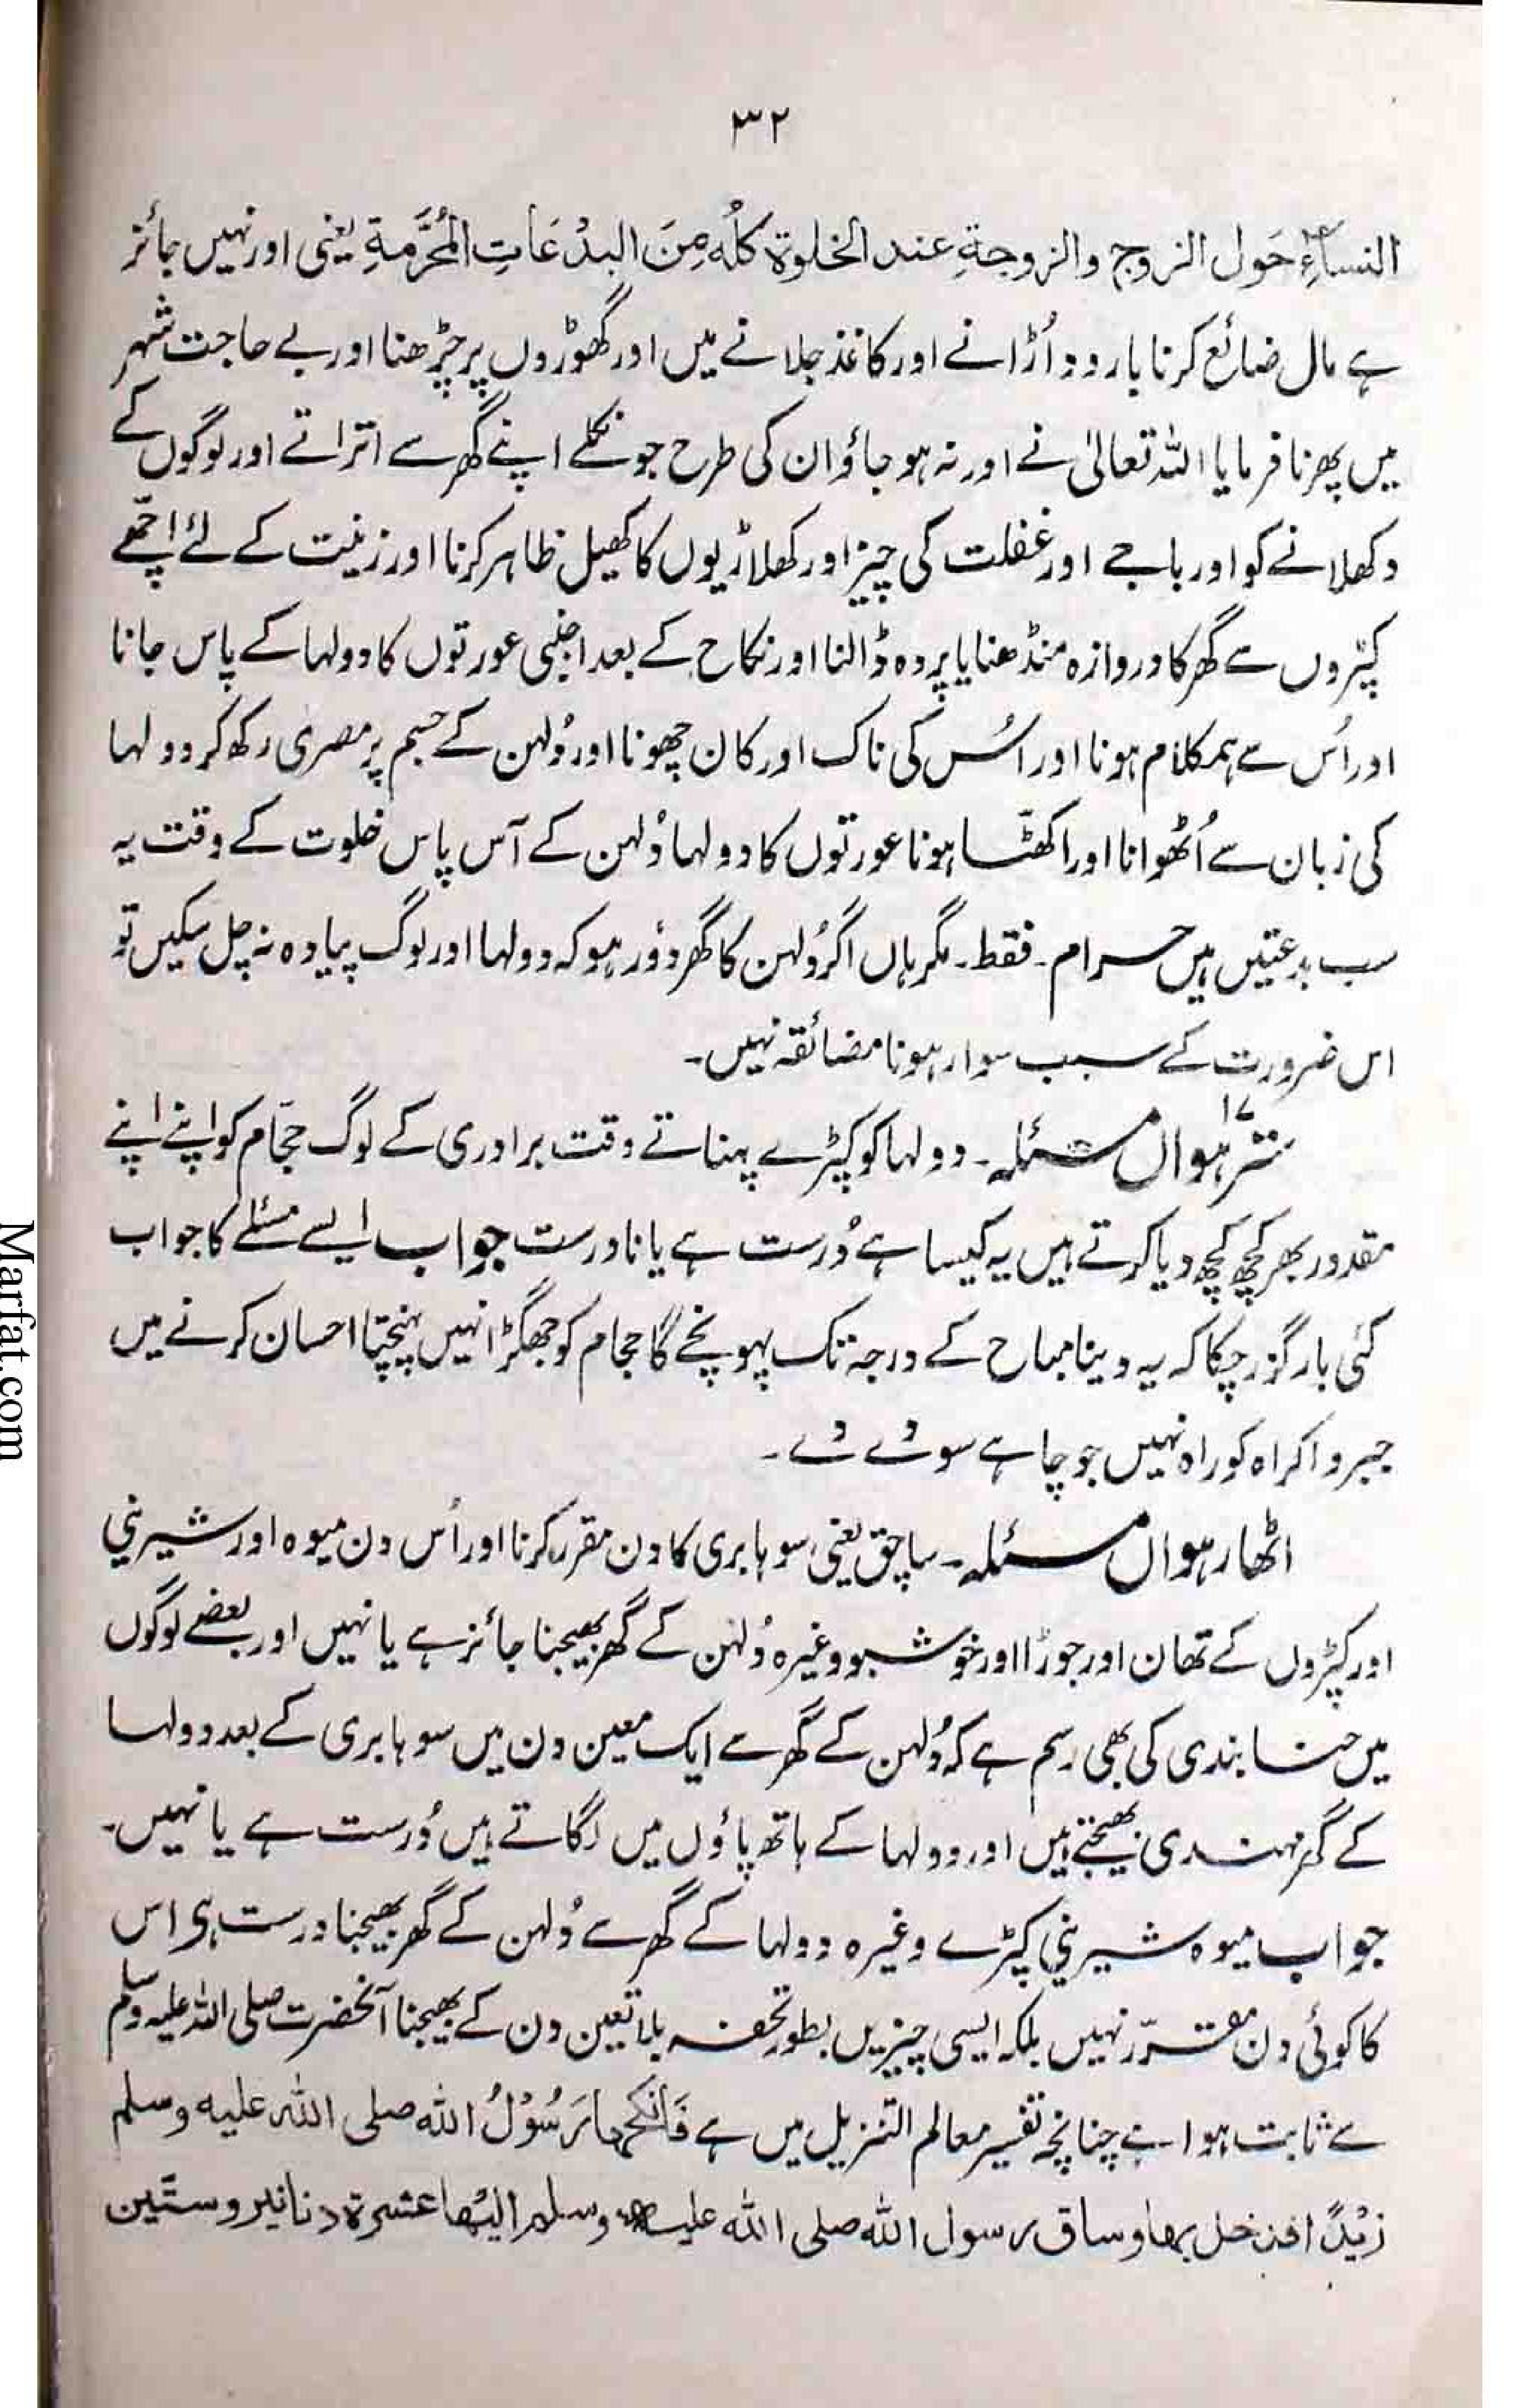 ۳۲
النساءِ حَول الزوج والزوجةِ عند الخلوة كلُه مِنَ البدْعَاتِ المُحَّرمةِ یعنی اور نہیں جائز
ہے مال ضائع کرنا بارود اُڑانے اور کاغذ جلانے میں اور گھوڑوں پر چڑھنا اور بے حاجت شہر
میں پھرنا فرمایا اللہ تعالیٰ نے اور نہ ہو جاؤ ان کی طرح جو نکلے اپنے گھر سے اتراتے اور لوگوں کے
دکھلانے کو اور باجے اور غفلت کی چیز اور کھلاڑیوں کا کھیل ظاہر کرنا اور زینت کے لئے اچّھے
کپڑوں سے گھر کا دروازہ منڈھنا یا پردہ ڈالنا اور نکاح کے بعد اجنبی عورتوں کا دولہا کے پاس جانا
اور اُس سے ہمکلام ہونا اور اُس کی ناک اور کان چھونا اور دُلہن کے جسم پر مصری رکھ کر دولہا
کی زبان سے اُٹھوانا اور اکھٹّا ہونا عورتوں کا دولہا دُلہن کے آس پاس خلوت کے وقت یہ
سب بدعتیں ہیں حرام۔ فقط۔ مگر ہاں اگر دُلہن کا گھر دُور ہو کہ دولہا اور لوگ پیادہ نہ چل سکیں تو
اس ضرورت کے سبب سوار ہونا مضائقہ نہیں۔
سترہواں ۱۷ مسئلہ۔ دولہا کو کپڑے پہناتے وقت برادری کے لوگ حجّام کو اپنے اپنے
مقدور بھر کچھ کچھ دیا کرتے ہیں یہ کیسا ہے دُرست ہے یا نادرست جواب ایسے مسئلے کا جواب
کئی بار گزر چکا کہ یہ دینا مباح کے درجہ تک پہونچے گا حجام کو جھگڑا نہیں پہنچتا احسان کرنے میں
جبر و اکراہ کو راہ نہیں جو چاہے سو دے دے۔
اٹھارہواں مسئلہ۔ ساچق یعنی سوہا بری کا دن مقرر کرنا اور اُس دن میوہ اور شیرینی
اور کپڑوں کے تھان اور جوڑا اور خوشبو وغیرہ دُلہن کے گھر بھیجنا جائز ہے یا نہیں اور بعضے لوگوں
میں حنا بندی کی بھی رسم ہے کہ دُلہن کے گھر سے ایک معین دن میں سوہا بری کے بعد دولہا
کے گھر مہندی بھیجتے ہیں اور دولہا کے ہاتھ پاؤں میں لگاتے ہیں دُرست ہے یا نہیں۔
جواب میوہ شیرینی کپڑے وغیرہ دولہا کے گھر سے دُلہن کے گھر بھیجنا درست ہی اس
کا کوئی دن مقرّر نہیں بلکہ ایسی چیزیں بطور تحفہ بلا تعین دن کے بھیجنا آنحضرت صلی اللہ علیہ وسلم
سے ثابت ہوا ہے چنانچہ تفسیر معالم التنزیل میں ہے فَانكحها رَسُوْلُ الله صلى الله عليه وسلم
زَيْدًا فدخل بها وساق رسول الله صلى الله عليه وسلم اليْها عشرة دنانير وستّين
Marfat.com